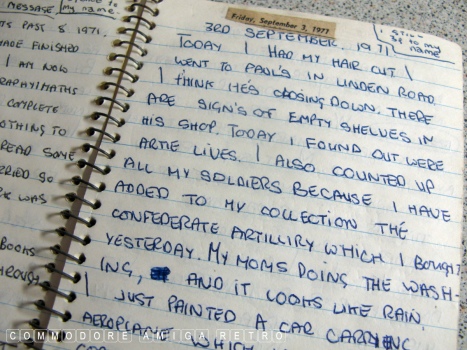 MESSAGE
my name
TS PAST 5 1971.
HAVE FINISHED
I AM NOW
RAPHY/MATHS
COMPLETE
OTHING TO
READ SOME
RRIED SO
RK WAS
BOOKS
HROUGH
Friday, September 3, 1971
I STILL
my name
3RD SEPTEMBER. 1971
TODAY I HAD MY HAIR CUT I
WENT TO PAUL'S IN LINDEN ROAD
I THINK HE'S CLOSING DOWN. THERE
ARE SIGN'S OF EMPTY SHELVES IN
HIS SHOP. TODAY I FOUND OUT WERE
ARTIE LIVES. I ALSO COUNTED UP
ALL MY SOLDIERS BECAUSE I HAVE
ADDED TO MY COLLECTION THE
CONFEDERATE ARTILLIRY WHICH I BOUGHT
YESTERDAY. MY MOMS DOING THE WASH-
ING, AND IT LOOKS LIKE RAIN.
I JUST PAINTED A CAR CARRYING
AEROPLANE WHICH
COMMODORE AMIGA RETRO